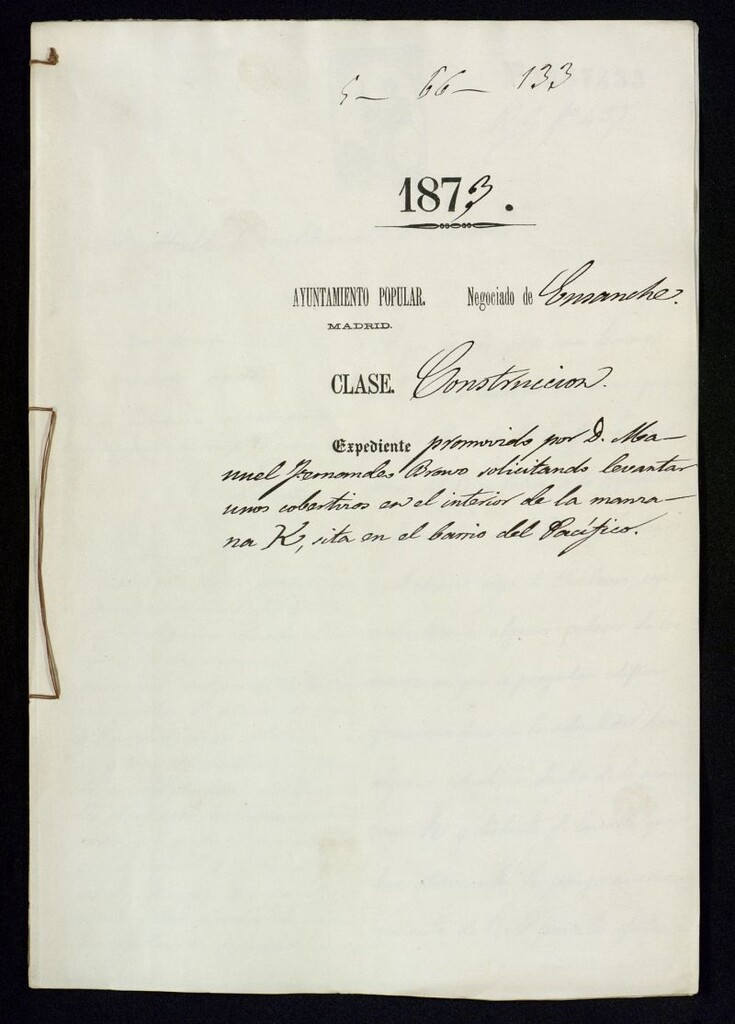 5 - 66 - 133
1873.
AYUNTAMIENTO POPULAR. Negociado de Ensanche.
MADRID.
CLASE. Construccion.
Expediente promovido por D. Ma-
nuel Fernandez Bravo solicitando levantar
unos cobertizos en el interior de la manza-
na K, sita en el barrio del Pacífico.